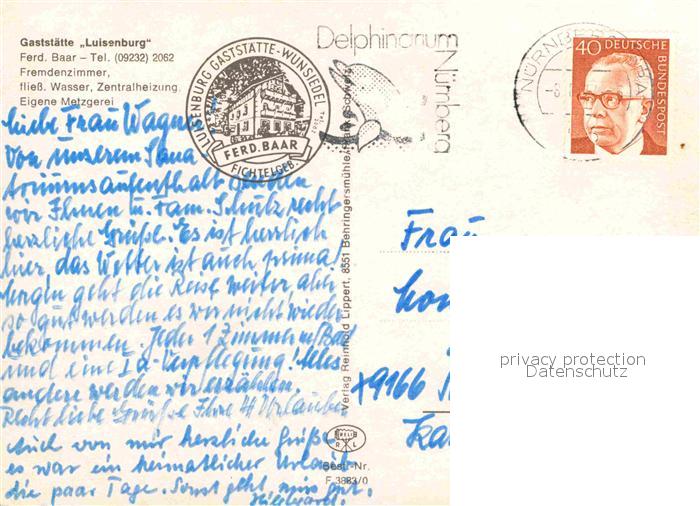 Gaststätte „Luisenburg"
Ferd. Baar – Tel. (09232) 2062
Fremdenzimmer,
fließ. Wasser, Zentralheizung
Eigene Metzgerei
LUISENBURG GASTSTÄTTE-WUNSIEDEL
FERD. BAAR
FICHTELGEB.
Delphinarium
Nürnberg
NÜRNBERG
40 DEUTSCHE
BUNDESPOST
Liebe Frau Wagn
Von unserem Sana-
toriumsaufenthalt senden
wir Ihnen u. Fam. Schutz recht
herzliche Grüße. Es ist herrlich
hier, das Wetter ist auch prima
Morgen geht die Reise weiter, aber
so gut werden es wir nicht wieder
bekommen. Jeder 1 Zimmer m/Bad
und eine Ia-Verpflegung! Alles
andere werden wir erzählen.
Recht liebe Grüße Ihre 4 Urlauber
Auch von mir herzliche Grüße
es war ein heimatlicher Urlaub
die paar Tage. Sonst geht uns gut.
Verlag Reinhold Lippert, 8551 Behringersmühle
RELI
R L
Best.-Nr.
F 3883/0
Frau
9166
privacy protection
Datenschutz